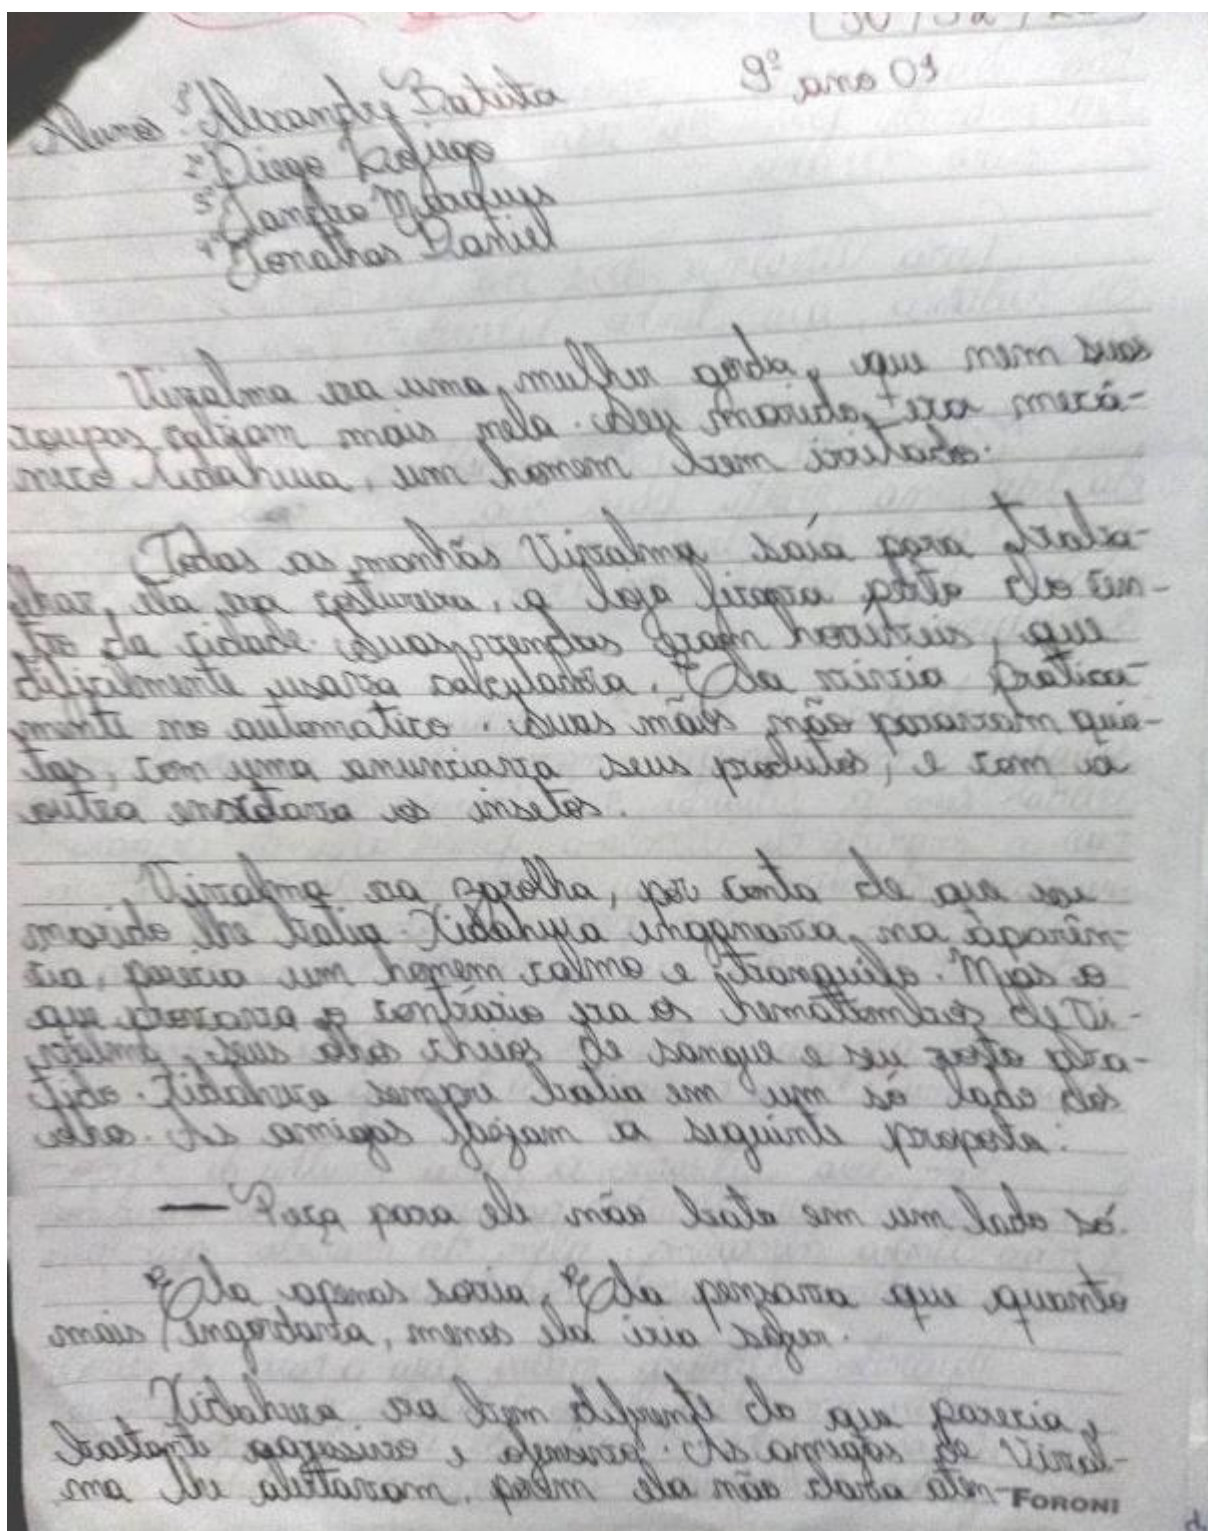 9º ano 01
Alunos: 1º Alexandre Batista
2º Diego Rodrigo
3º Sandro Marques
4º Jonathas Daniel
Vivalma era uma mulher gorda, que nem suas
roupas cabiam mais nela. Seu marido, era mecâ-
nico Xidahua, um homem bem irritado.
Todas as manhãs Vivalma saía para traba-
lhar, ela era costureira, a loja ficava perto do cen-
tro da cidade. Suas vendas eram horríveis, que
dificilmente usava calculadora. Ela vivia pratica-
mente no automatico. Suas mãos não paravam quie-
tas, com uma anunciava seus produtos, e com a
outra enxotava os insetos.
Vivalma era zarolha, por conta de que seu
marido lhe batia. Xidahua enganava, na aparên-
cia, parecia um homem calmo e tranquilo. Mas o
que provava o contrário era os hematombas de Vi-
valma, seus olhos cheios de sangue e seu rosto aba-
tido. Xidahua sempre batia em um só lado dos
olhos. As amigas faziam a seguinte proposta:
— Peça para ele não bater em um lado só.
Ela apenas sorria, Ela pensava que quanto
mais engordava, menos ela iria sofrer.
Xidahua era bem diferente do que parecia,
bastante agressivo e As amigas de Vival-
ma lhe alertaram, porém ela não dava aten-
FORONI